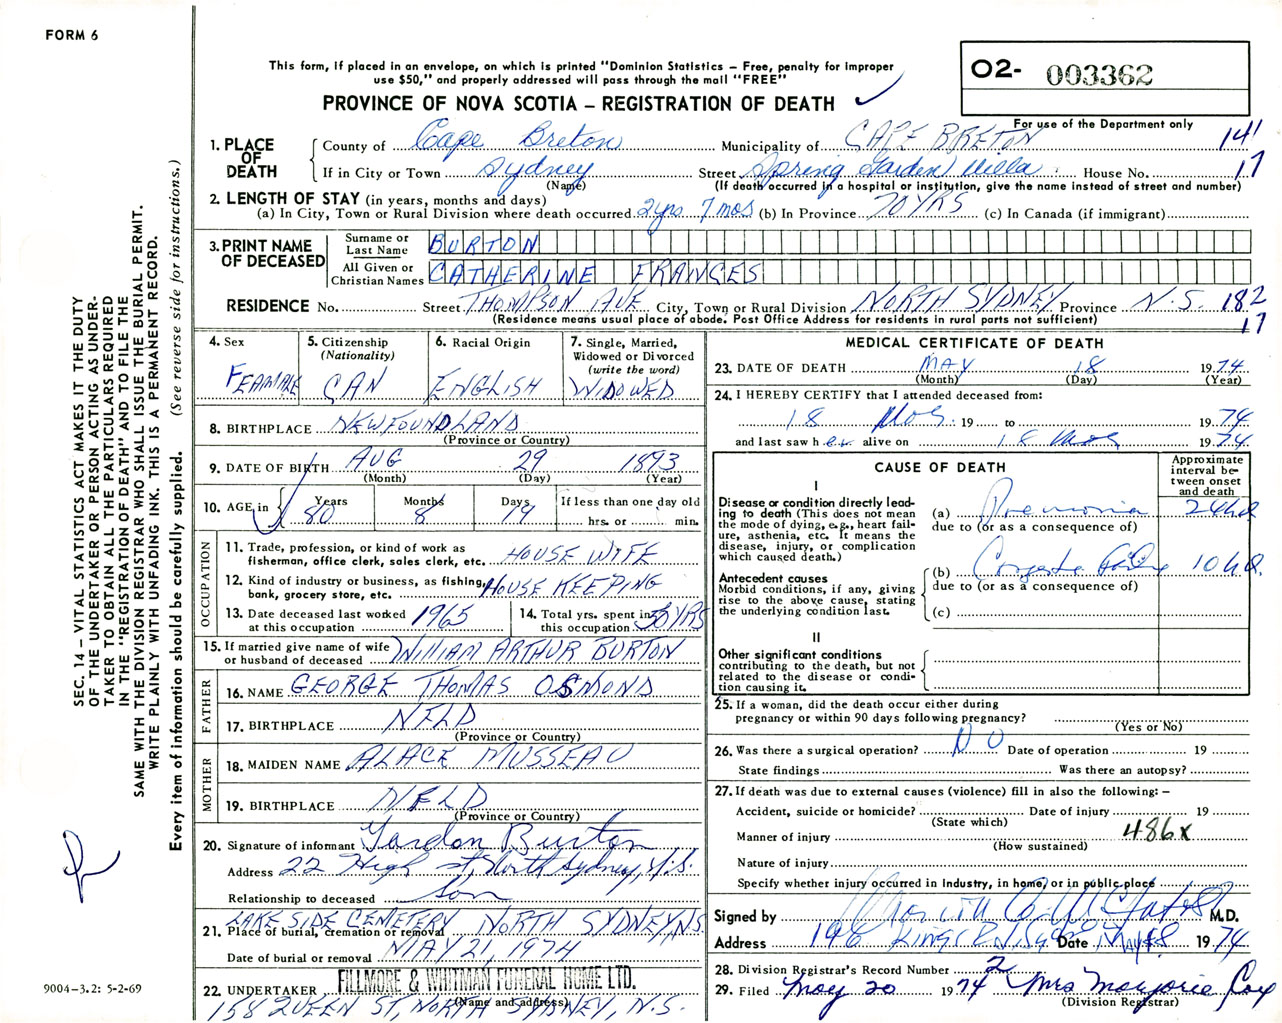 FORM 6
This form, if placed in an envelope, on which is printed "Dominion Statistics – Free, penalty for improper
use $50," and properly addressed will pass through the mail "FREE"
PROVINCE OF NOVA SCOTIA – REGISTRATION OF DEATH
02- 003362
For use of the Department only
141
17
1. PLACE OF DEATH
County of Cape Breton Municipality of CAPE BRETON
If in City or Town Sydney Street Spring Garden Villa House No.
(Name) (If death occurred in a hospital or institution, give the name instead of street and number)
2. LENGTH OF STAY (in years, months and days)
(a) In City, Town or Rural Division where death occurred 2 yrs 7 mos (b) In Province 70 YRS (c) In Canada (if immigrant)
3. PRINT NAME OF DECEASED
Surname or Last Name BURTON
All Given or Christian Names CATHERINE FRANCES
RESIDENCE No. Street THOMPSON AVE City, Town or Rural Division NORTH SYDNEY Province N.S. 182
(Residence means usual place of abode. Post Office Address for residents in rural parts not sufficient) 17
4. Sex FEAMALE
5. Citizenship (Nationality) CAN
6. Racial Origin ENGLISH
7. Single, Married, Widowed or Divorced (write the word) WIDOWED
8. BIRTHPLACE NEWFOUNDLAND
(Province or Country)
9. DATE OF BIRTH AUG 29 1893
(Month) (Day) (Year)
10. AGE in Years 80 Months 8 Days 19 If less than one day old
hrs. or min.
OCCUPATION
11. Trade, profession, or kind of work as
fisherman, office clerk, sales clerk, etc. HOUSE WIFE
12. Kind of industry or business, as fishing,
bank, grocery store, etc. HOUSE KEEPING
13. Date deceased last worked at this occupation 1965
14. Total yrs. spent in this occupation 50 YRS
15. If married give name of wife
or husband of deceased WILLIAM ARTHUR BURTON
FATHER
16. NAME GEORGE THOMAS OSMOND
17. BIRTHPLACE NFLD
(Province or Country)
MOTHER
18. MAIDEN NAME ALACE MUSSEAU
19. BIRTHPLACE NFLD
(Province or Country)
20. Signature of informant Gordon Burton
Address 22 High St, North Sydney, N.S.
Relationship to deceased Son
LAKESIDE CEMETERY NORTH SYDNEY, N.S.
21. Place of burial, cremation or removal
Date of burial or removal MAY 21, 1974
22. UNDERTAKER FILLMORE & WHITMAN FUNERAL HOME LTD.
(Name and address)
158 QUEEN ST, NORTH SYDNEY, N.S.
MEDICAL CERTIFICATE OF DEATH
23. DATE OF DEATH MAY 18 1974
(Month) (Day) (Year)
24. I HEREBY CERTIFY that I attended deceased from:
18 Mos. 19 to 1974
and last saw her alive on 18 Mos 1974
CAUSE OF DEATH
Approximate interval between onset and death
I
Disease or condition directly leading to death (This does not mean the mode of dying, e.g., heart failure, asthenia, etc. It means the disease, injury, or complication which caused death.)
(a) Pneumonia 24
due to (or as a consequence of)
Antecedent causes
Morbid conditions, if any, giving rise to the above cause, stating the underlying condition last.
(b) 10
due to (or as a consequence of)
(c)
II
Other significant conditions
contributing to the death, but not related to the disease or condition causing it.
25. If a woman, did the death occur either during
pregnancy or within 90 days following pregnancy?
(Yes or No)
26. Was there a surgical operation? NO Date of operation 19
State findings Was there an autopsy?
27. If death was due to external causes (violence) fill in also the following: –
Accident, suicide or homicide? Date of injury 19
(State which)
Manner of injury 486x
(How sustained)
Nature of injury
Specify whether injury occurred in Industry, in home, or in public place
Signed by M.D.
Address 196 Kings Rd Date May 18 1974
28. Division Registrar's Record Number 2
29. Filed May 20 1974 Mrs Marjorie Cox
(Division Registrar)
SEC. 14 – VITAL STATISTICS ACT MAKES IT THE DUTY
OF THE UNDERTAKER OR PERSON ACTING AS UNDER-
TAKER TO OBTAIN ALL THE PARTICULARS REQUIRED
IN THE "REGISTRATION OF DEATH" AND TO FILE THE
SAME WITH THE DIVISION REGISTRAR WHO SHALL ISSUE THE BURIAL PERMIT.
WRITE PLAINLY WITH UNFADING INK. THIS IS A PERMANENT RECORD.
Every item of information should be carefully supplied. (See reverse side for instructions.)
9004-3.2: 5-2-69